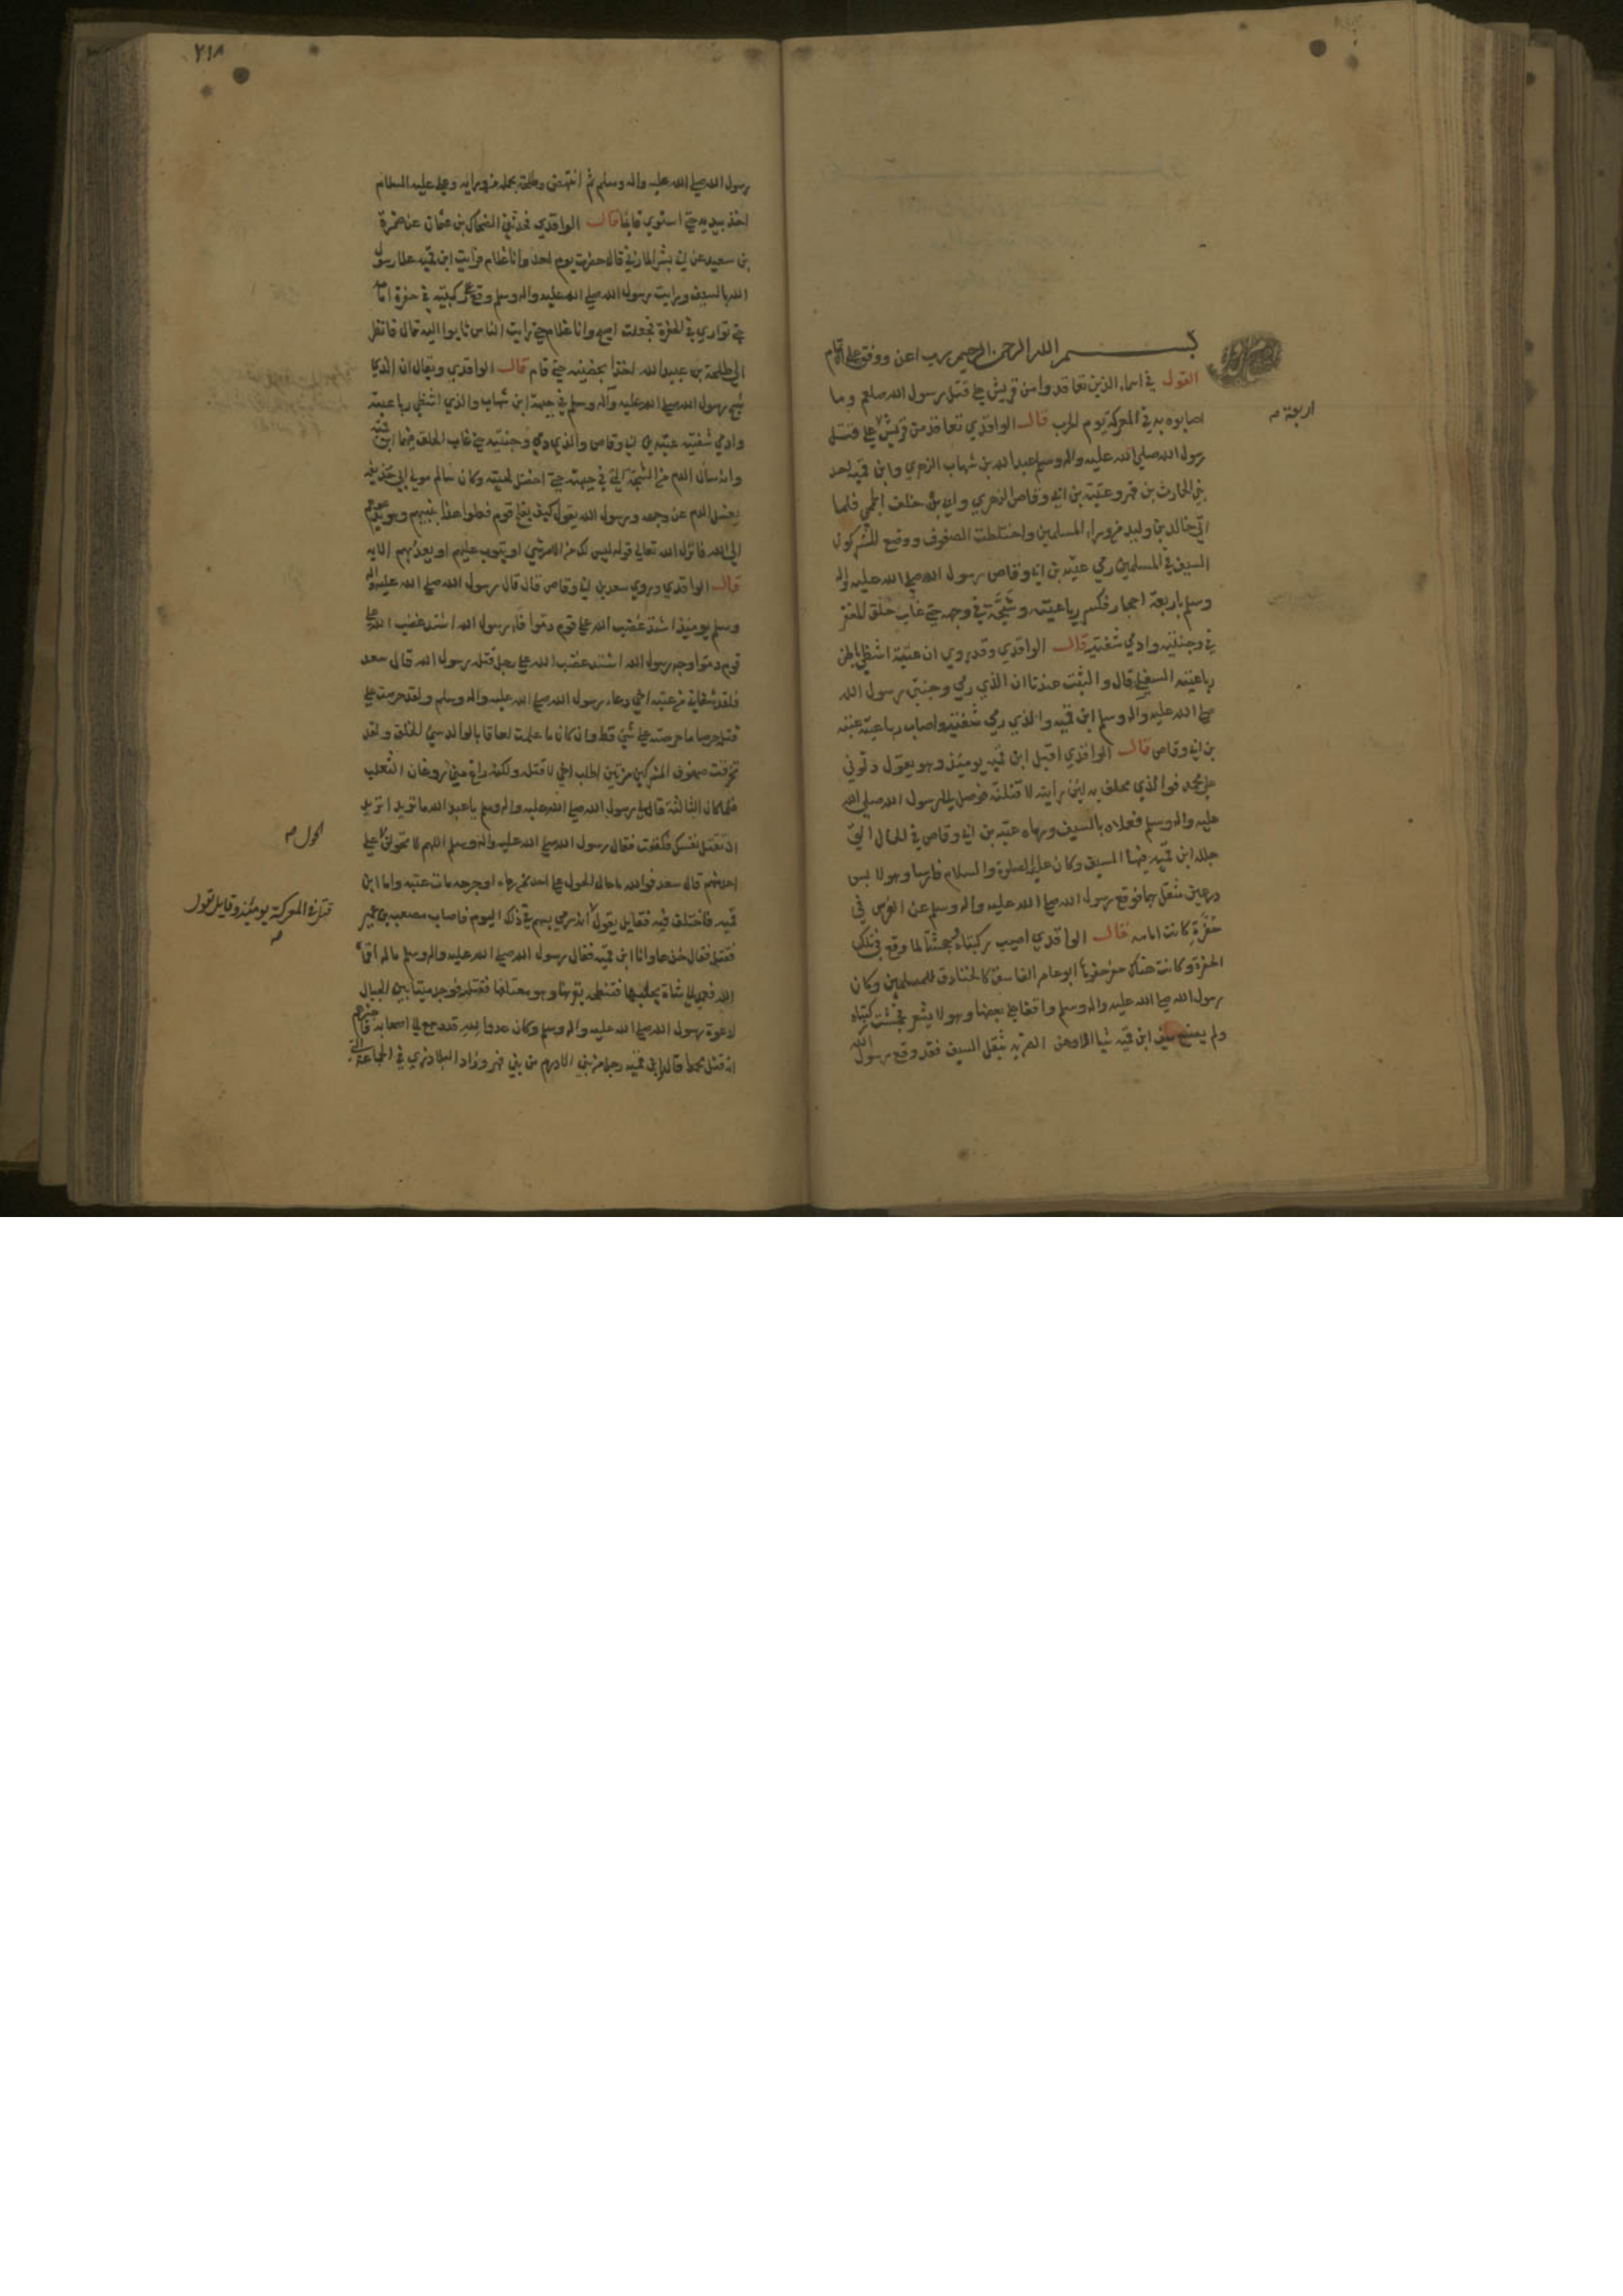 بسم الله الرحمن الرحيم رب اعن ووفق على الاتمام
القول في اسماء الذين تعاقدوا من قريش على قتل رسول الله صلعم وما
اصابوه به في المعركة يوم الحرب قال الواقدي تعاقد من قريش على قتل
اربعة صح
رسول الله صلى الله عليه واله وسلم عبد الله بن شهاب الزهري وابن قميه احد
بني الحارث بن فهر وعتبة بن ابي وقاص الزهري وابي بن خلف الجمحي فلما
اتى خالد بن وليد من وراء المسلمين واختلطت الصفوف ووضع المشركون
السيف في المسلمين رمى عتبه بن ابي وقاص رسول الله صلى الله عليه واله
وسلم باربعة احجار فكسر رباعيته وشجه في وجهه حتى غاب حلق المغفر
في وجنتيه وادمى شفتيه قال الواقدي وقد روي ان عتبة اشظى باطن
رباعيته السفلى قال والثبت عندنا ان الذي رمى وجنتي رسول الله
صلى الله عليه واله وسلم ابن قميه والذي رمى شفتيه واصاب رباعيته عتبه
بن ابي وقاص قال الواقدي اقبل ابن قميه يومئذ وهو يقول دلوني
على محمد فوالذي يحلف به لئن رأيته لاقتلنه فوصل الى رسول الله صلى الله
عليه واله وسلم فعلاه بالسيف ورماه عتبه بن ابي وقاص في الحال التي
جلله ابن قميه فيها السيف وكان عليه الصلوة والسلام فارسا وهو لابس
درعين مثقل بهما فوقع رسول الله صلى الله عليه واله وسلم عن الفرس في
حفرة كانت امامه قال الواقدي اصيب ركبتاه جحشتا لما وقع في تلك
الحفرة وكانت هناك حفر حفرها ابو عامر الفاسق كالخنادق للمسلمين وكان
رسول الله صلى الله عليه واله وسلم واقفا على بعضها وهو لا يشعر فجحشت ركبتاه
ولم يصنع سيف ابن قميه شيا الا وهن الضربه بثقل السيف فقد وقع رسول الله
٢١٨
رسول الله صلى الله عليه واله وسلم ثم انتهض وطلحة يحمله من ورايه وعلي عليه السلام
اخذ بيديه حتى استوى قايما قال الواقدي فحدثني الضحاك بن عثمان عن ضمرة
بن سعيد عن ابي بشير المازني قال حضرت يوم احد وانا غلام فرايت ابن قميه علا رسول
الله بالسيف ورايت رسول الله صلى الله عليه واله وسلم وقع على ركبتيه في حفرة امامه
حتى توارى في الحفرة فجعلت اصيح وانا غلام حتى رايت الناس ثابوا اليه قال فانظر
الى طلحة بن عبيد الله اخذا بحضنيه حتى قام قال الواقدي ويقال ان الذي
شج رسول الله صلى الله عليه وآله وسلم في جبهته ابن شهاب والذي اشظى رباعيته
وادمى شفتيه عتبه بن ابي وقاص والذي دمى وجنتيه حتى غاب الحلق فيهما ابن قميه
وانه سال الدم من الشجة التي في جبهته حتى اخضل لحيته وكان سالم مولى ابي حذيفه
يغسل الدم عن وجهه ورسول الله يقول كيف يفلح قوم فعلوا هذا بنبيهم وهو يدعوهم
الى الله فانزل الله تعالى قوله ليس لك من الامر شي او يتوب عليهم او يعذبهم الايه
قال الواقدي وروى سعد بن ابي وقاص قال قال رسول الله صلى الله عليه واله
وسلم يومئذ اشتد غضب الله على قوم دموا فاء رسول الله اشتد غضب الله على
قوم دموا وجه رسول الله اشتد غضب الله على رجل قتله رسول الله قال سعد
فلقد شفاني من عتبه اخي دعاء رسول الله صلى الله عليه واله وسلم ولقد حرصت على
قتله حرصا ما حرصت على شي قط وان كان ما علمت لعاقا بالوالد سيئ الخلق ولقد
تخرقت صفوف المشركين مرتين اطلب اخي لاقتله ولكنه راغ مني روغان الثعلب
فلما كان الثالثة قال لي رسول الله صلى الله عليه واله وسلم يا عبد الله ما تريد اتريد
ان تقتل نفسك فكففت فقال رسول الله صلى الله عليه واله وسلم اللهم لا تحولن على
الحول صح
احد منهم قال سعد فوالله ما حال الحول على احد ممن رماه او جرحه مات عتبه واما ابن
قميه فاختلف فيه فقايل يقول انه رمى بسهم في ذلك اليوم فاصاب مصعب بن عمير
قتل في المعركة يومئذ وقايل يقول
صح
فقتله فقال خذها وانا ابن قميه فقال رسول الله صلى الله عليه واله وسلم ماله اقماه
الله فعمد الى شاة يحلبها فتنطحه بقرنها وهو معتلقها فقتلته فوجد ميتا بين الجبال
لدعوة رسول الله صلى الله عليه واله وسلم وكان عدو الله قد رجع الى اصحابه فاخبرهم
انه قتل محمدا قال وابن قميه رجل من بني الادرم من بني فهر وزاد البلاذري في الجماعة التي